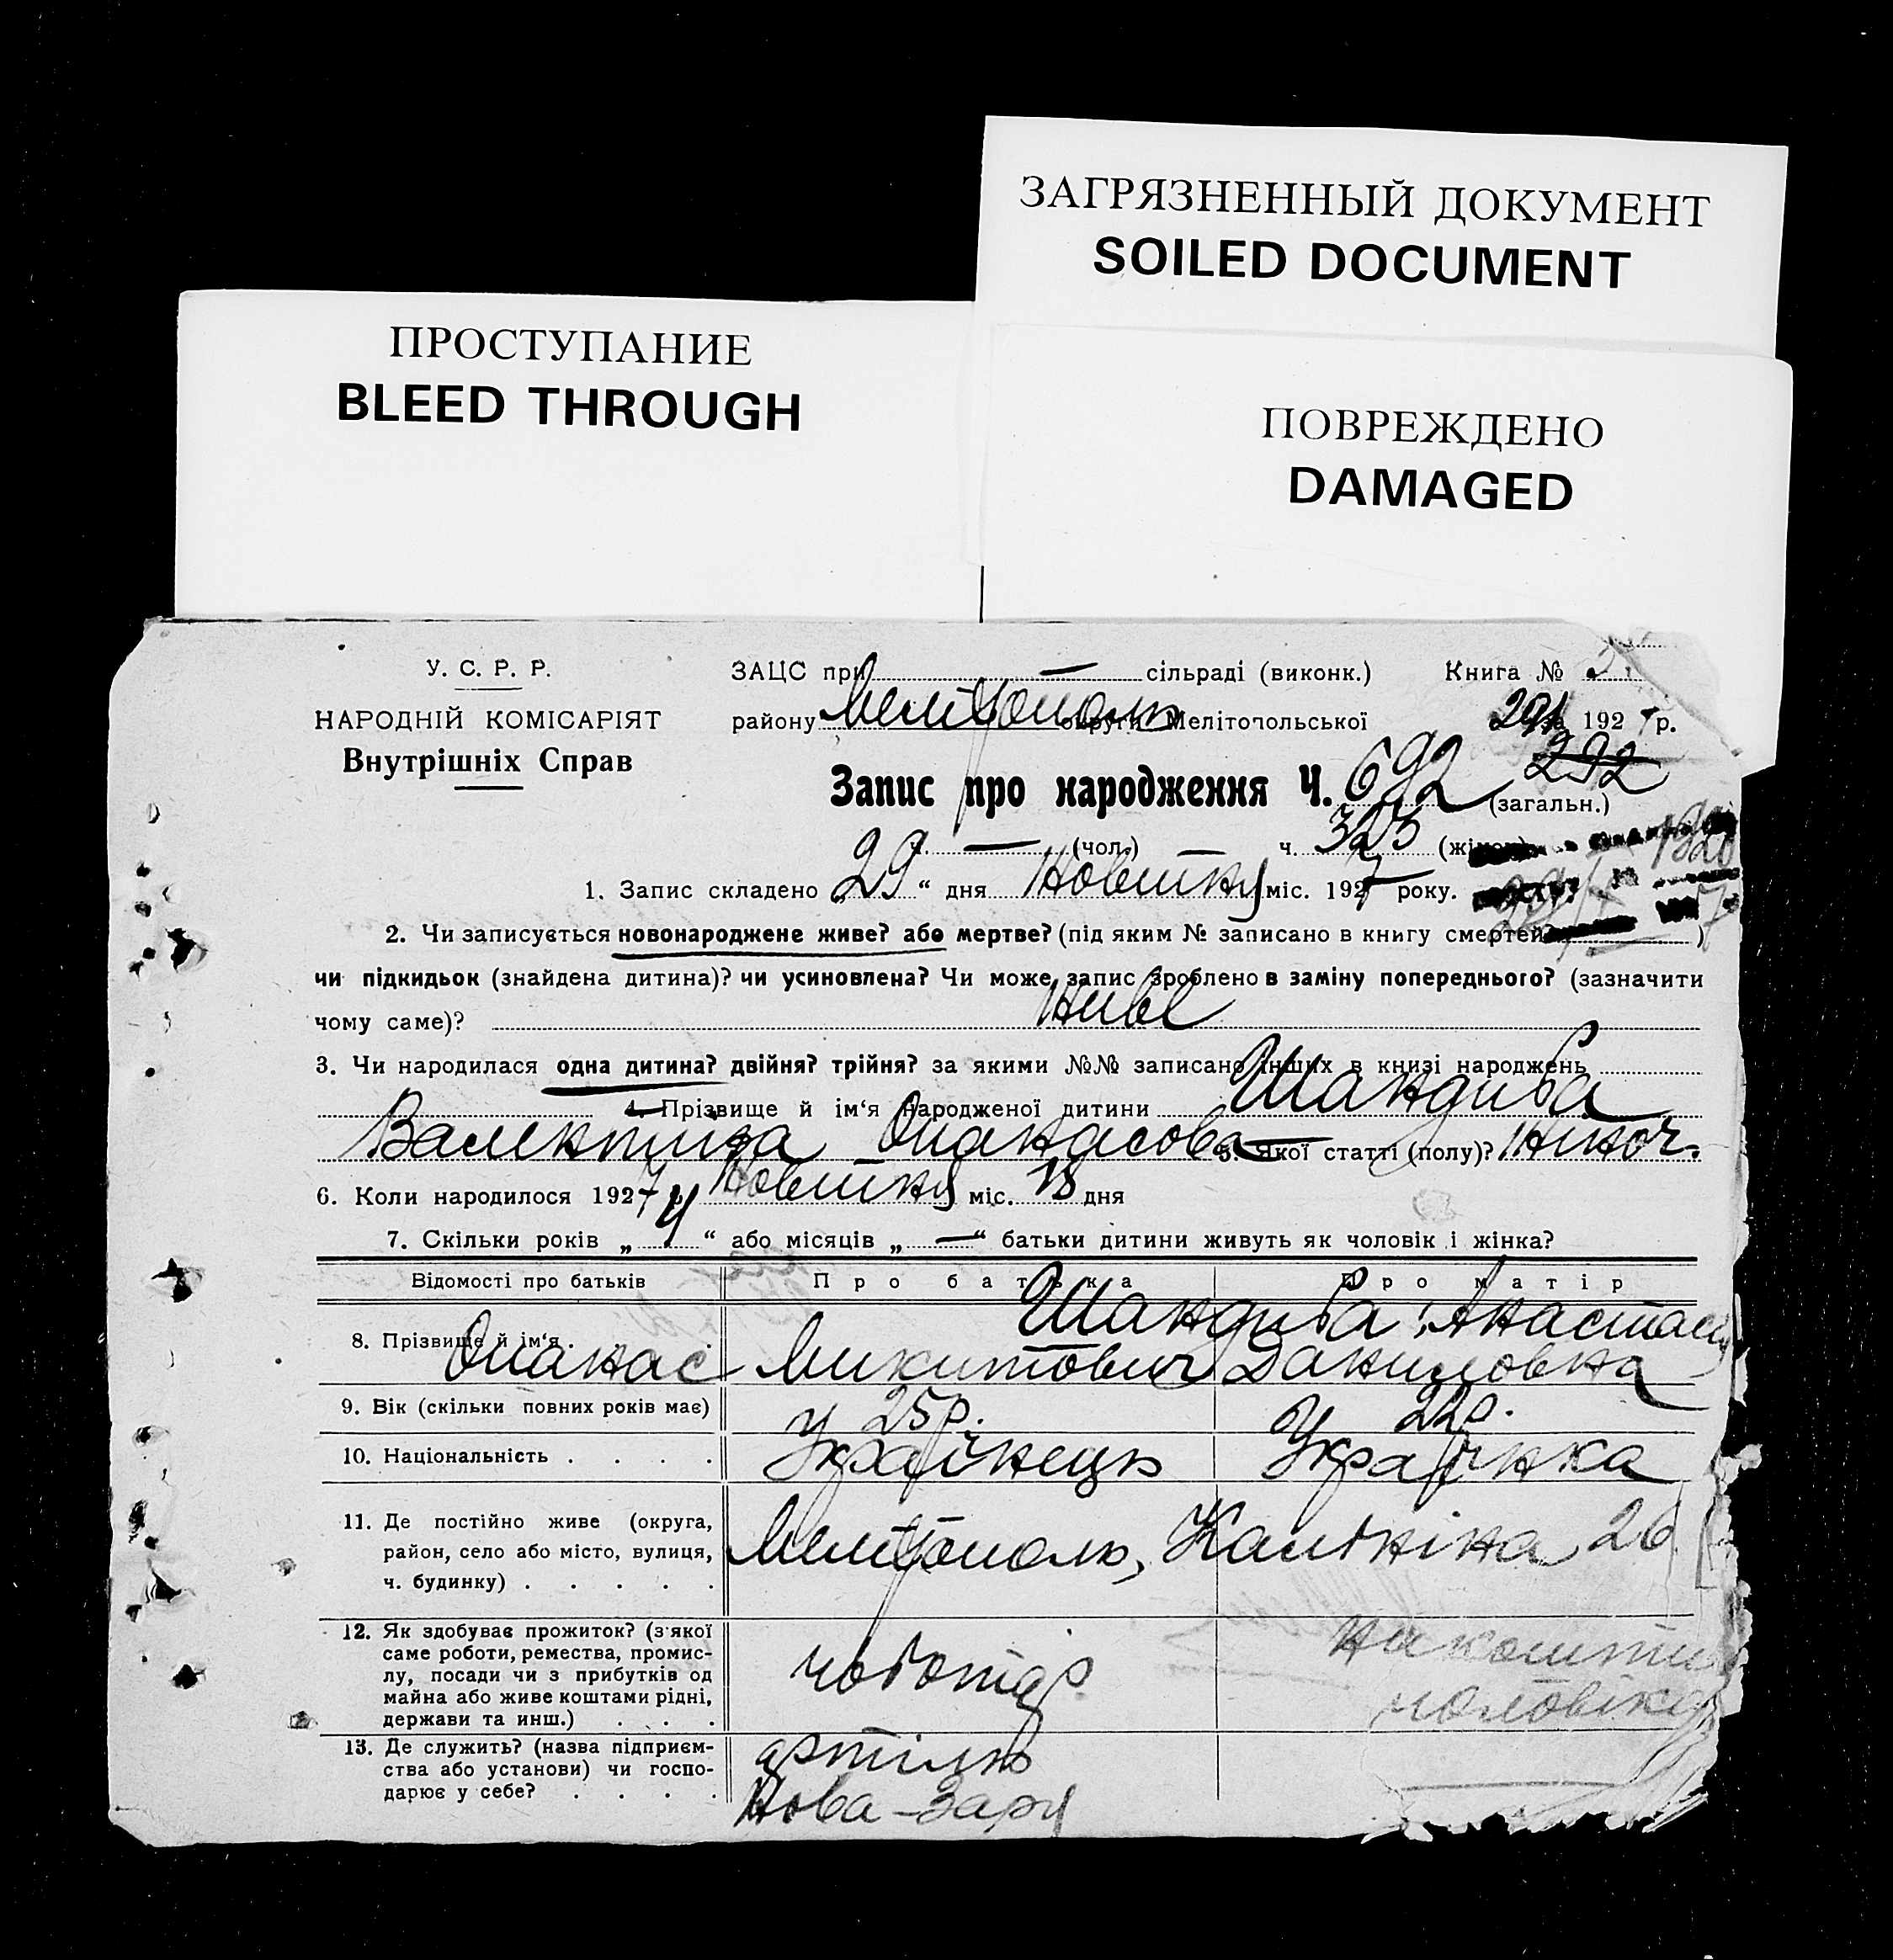 ЗАГРЯЗНЕННЫЙ ДОКУМЕНТ
SOILED DOCUMENT
ПРОСТУПАНИЕ
BLEED THROUGH
ПОВРЕЖДЕНО
DAMAGED
У. С. Р. Р.
НАРОДНІЙ КОМІСАРІЯТ
Внутрішніх Справ
ЗАЦС при — сільраді (виконк.) Книга №
району Мелітополь округи Мелітопольської 291 за 1927 р.
Запис про народження Ч. 692 292 (загальн.)
ч. — (чол.) ч. 323
1. Запис складено „29“ дня Новитня міс. 1927 року.
2. Чи записується новонароджене живе? або мертве? (під яким № записано в книгу смертей? )
чи підкидьок (знайдена дитина)? чи усиновлена? Чи може запис зроблено в заміну попереднього? (зазначити
чому саме)? Живе
3. Чи народилася одна дитина? двійня? трійня? за якими №№ записано інших в книзі народжень
4. Прізвище й ім‘я народженої дитини Шандиба
Валентина Опанасова — 5. Якої статті (полу)? Жіноч.
6. Коли народилося 1927 р. міс. 18 дня
7. Скільки років „4“ або місяців „—“ батьки дитини живуть як чоловік і жінка?
Відомості про батьків Про батька Про матір
8. Прізвище й ім‘я Шандиба Анастасія
Опанас Микитович Даниловна
9. Вік (скільки повних років має) 25 р. 22 р.
10. Національність Українець Українка
11. Де постійно живе (округа,
район, село або місто, вулиця,
ч. будинку) Мелітополь, Калініна 26
12. Як здобуває прожиток? (з якої
саме роботи, ремества, промис-
лу, посади чи з прибутків од
майна або живе коштами рідні,
держави та инш.) чоботар на кошти
чоловіка
13. Де служить? (назва підприєм-
ства або установи) чи госпо-
дарює у себе? артіль
Нова-Заря